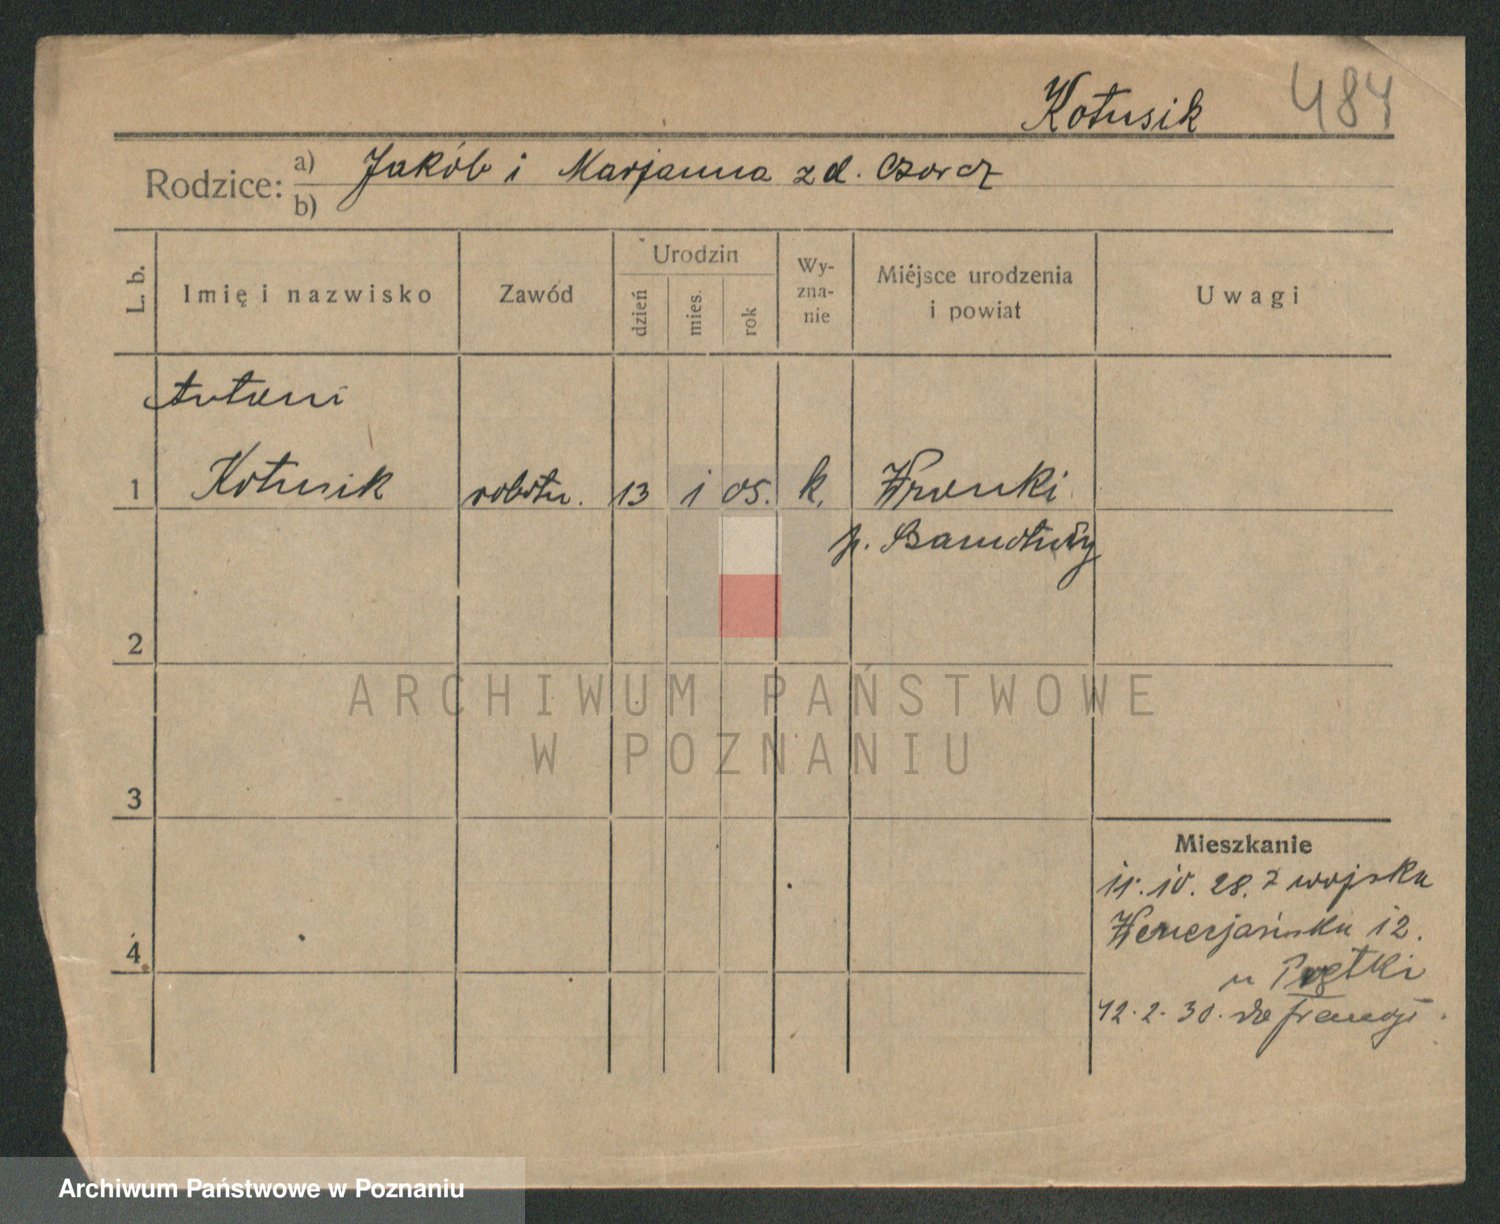 Kotusik 484
Rodzice: a) Jakób i Marjanna z d. Czorcz
b)
L. b. Imię i nazwisko Zawód Urodzin dzień mies. rok Wy-zna-nie Miejsce urodzenia i powiat Uwagi
Antoni
1 Kotusik robotn. 13 1 05. k. Wronki
p. Szamotuły
2
ARCHIWUM PAŃSTWOWE
W POZNANIU
3
Mieszkanie
11. 10. 28. z wojska
Wenecjańska 12.
4
u
12. 2. 30. do Francji.
Archiwum Państwowe w Poznaniu